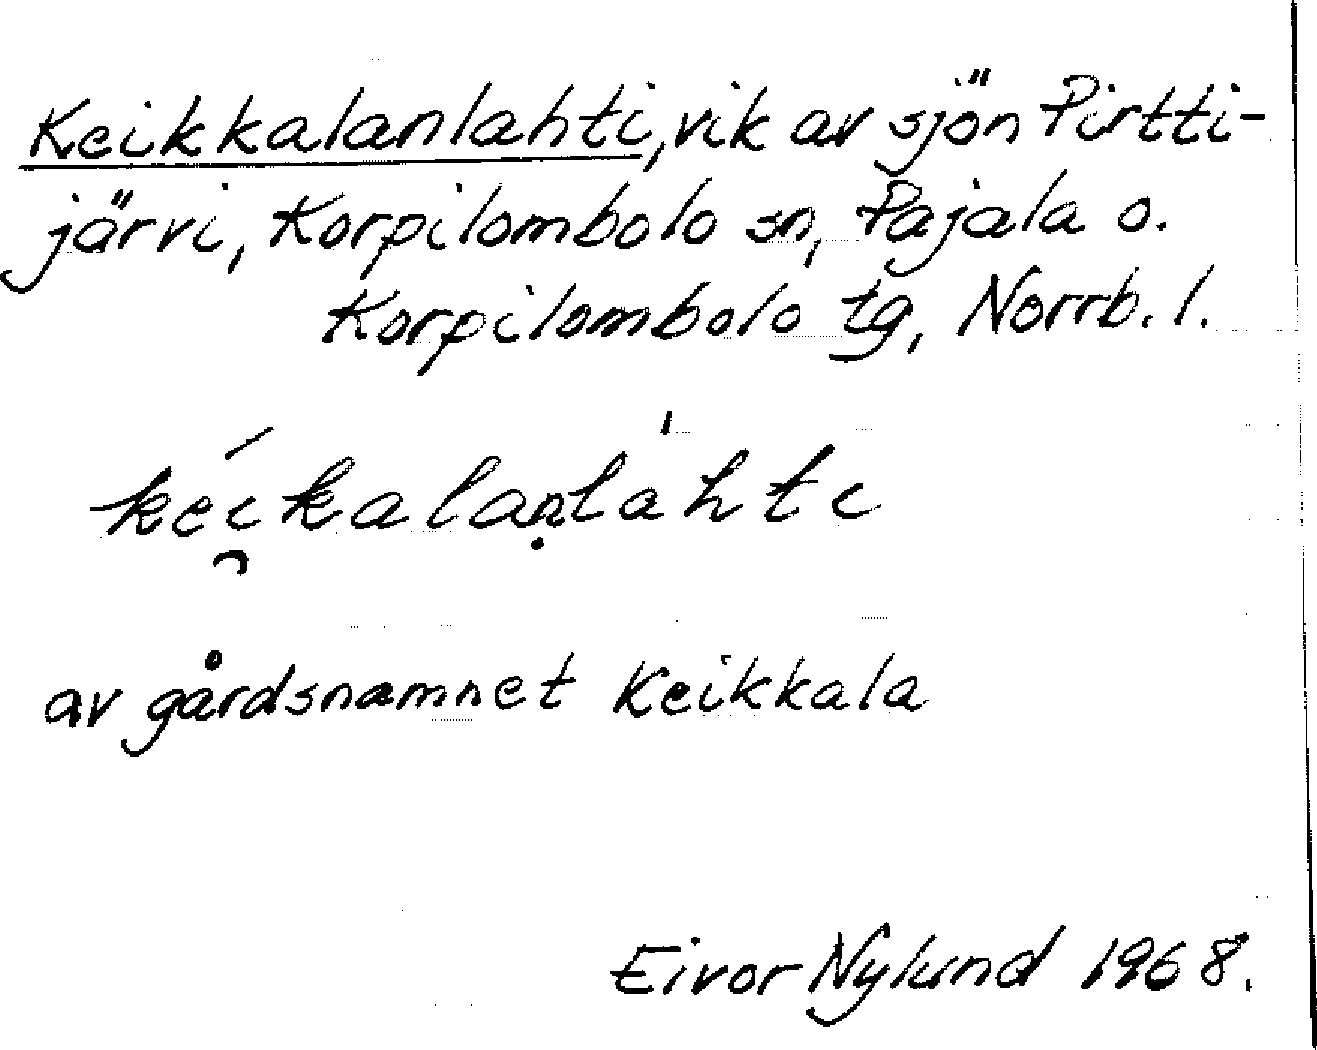 Keikkalanlahti, vik av sjön Pirtti-
järvi, Korpilombolo sn, Pajala o.
Korpilombolo tg, Norrb. l.
kéi̯kalaṇlàhti
av gårdsnamnet Keikkala
Eivor Nylund 1968.